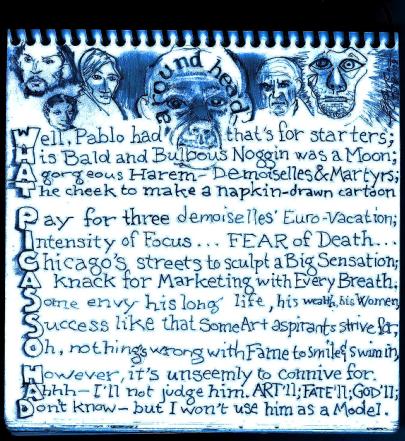 around head-
Well, Pablo had that's for starters;
His Bald and Bulbous Noggin was a Moon;
A gorgeous Harem—Demoiselles & Martyrs;
The cheek to make a napkin-drawn cartoon
Pay for three demoiselles' Euro-Vacation;
Intensity of Focus... FEAR of Death...
Chicago's streets to sculpt a Big Sensation;
A knack for Marketing with Every Breath.
Some envy his long life, his wealth, his Women,
Success like that Some Art aspirants strive for;
Oh, nothing's wrong with Fame to smile & swim in,
However, it's unseemly to connive for.
Ahhh—I'll not judge him. ART'll; FATE'll; GOD'll;
Don't know—but I won't use him as a Model.